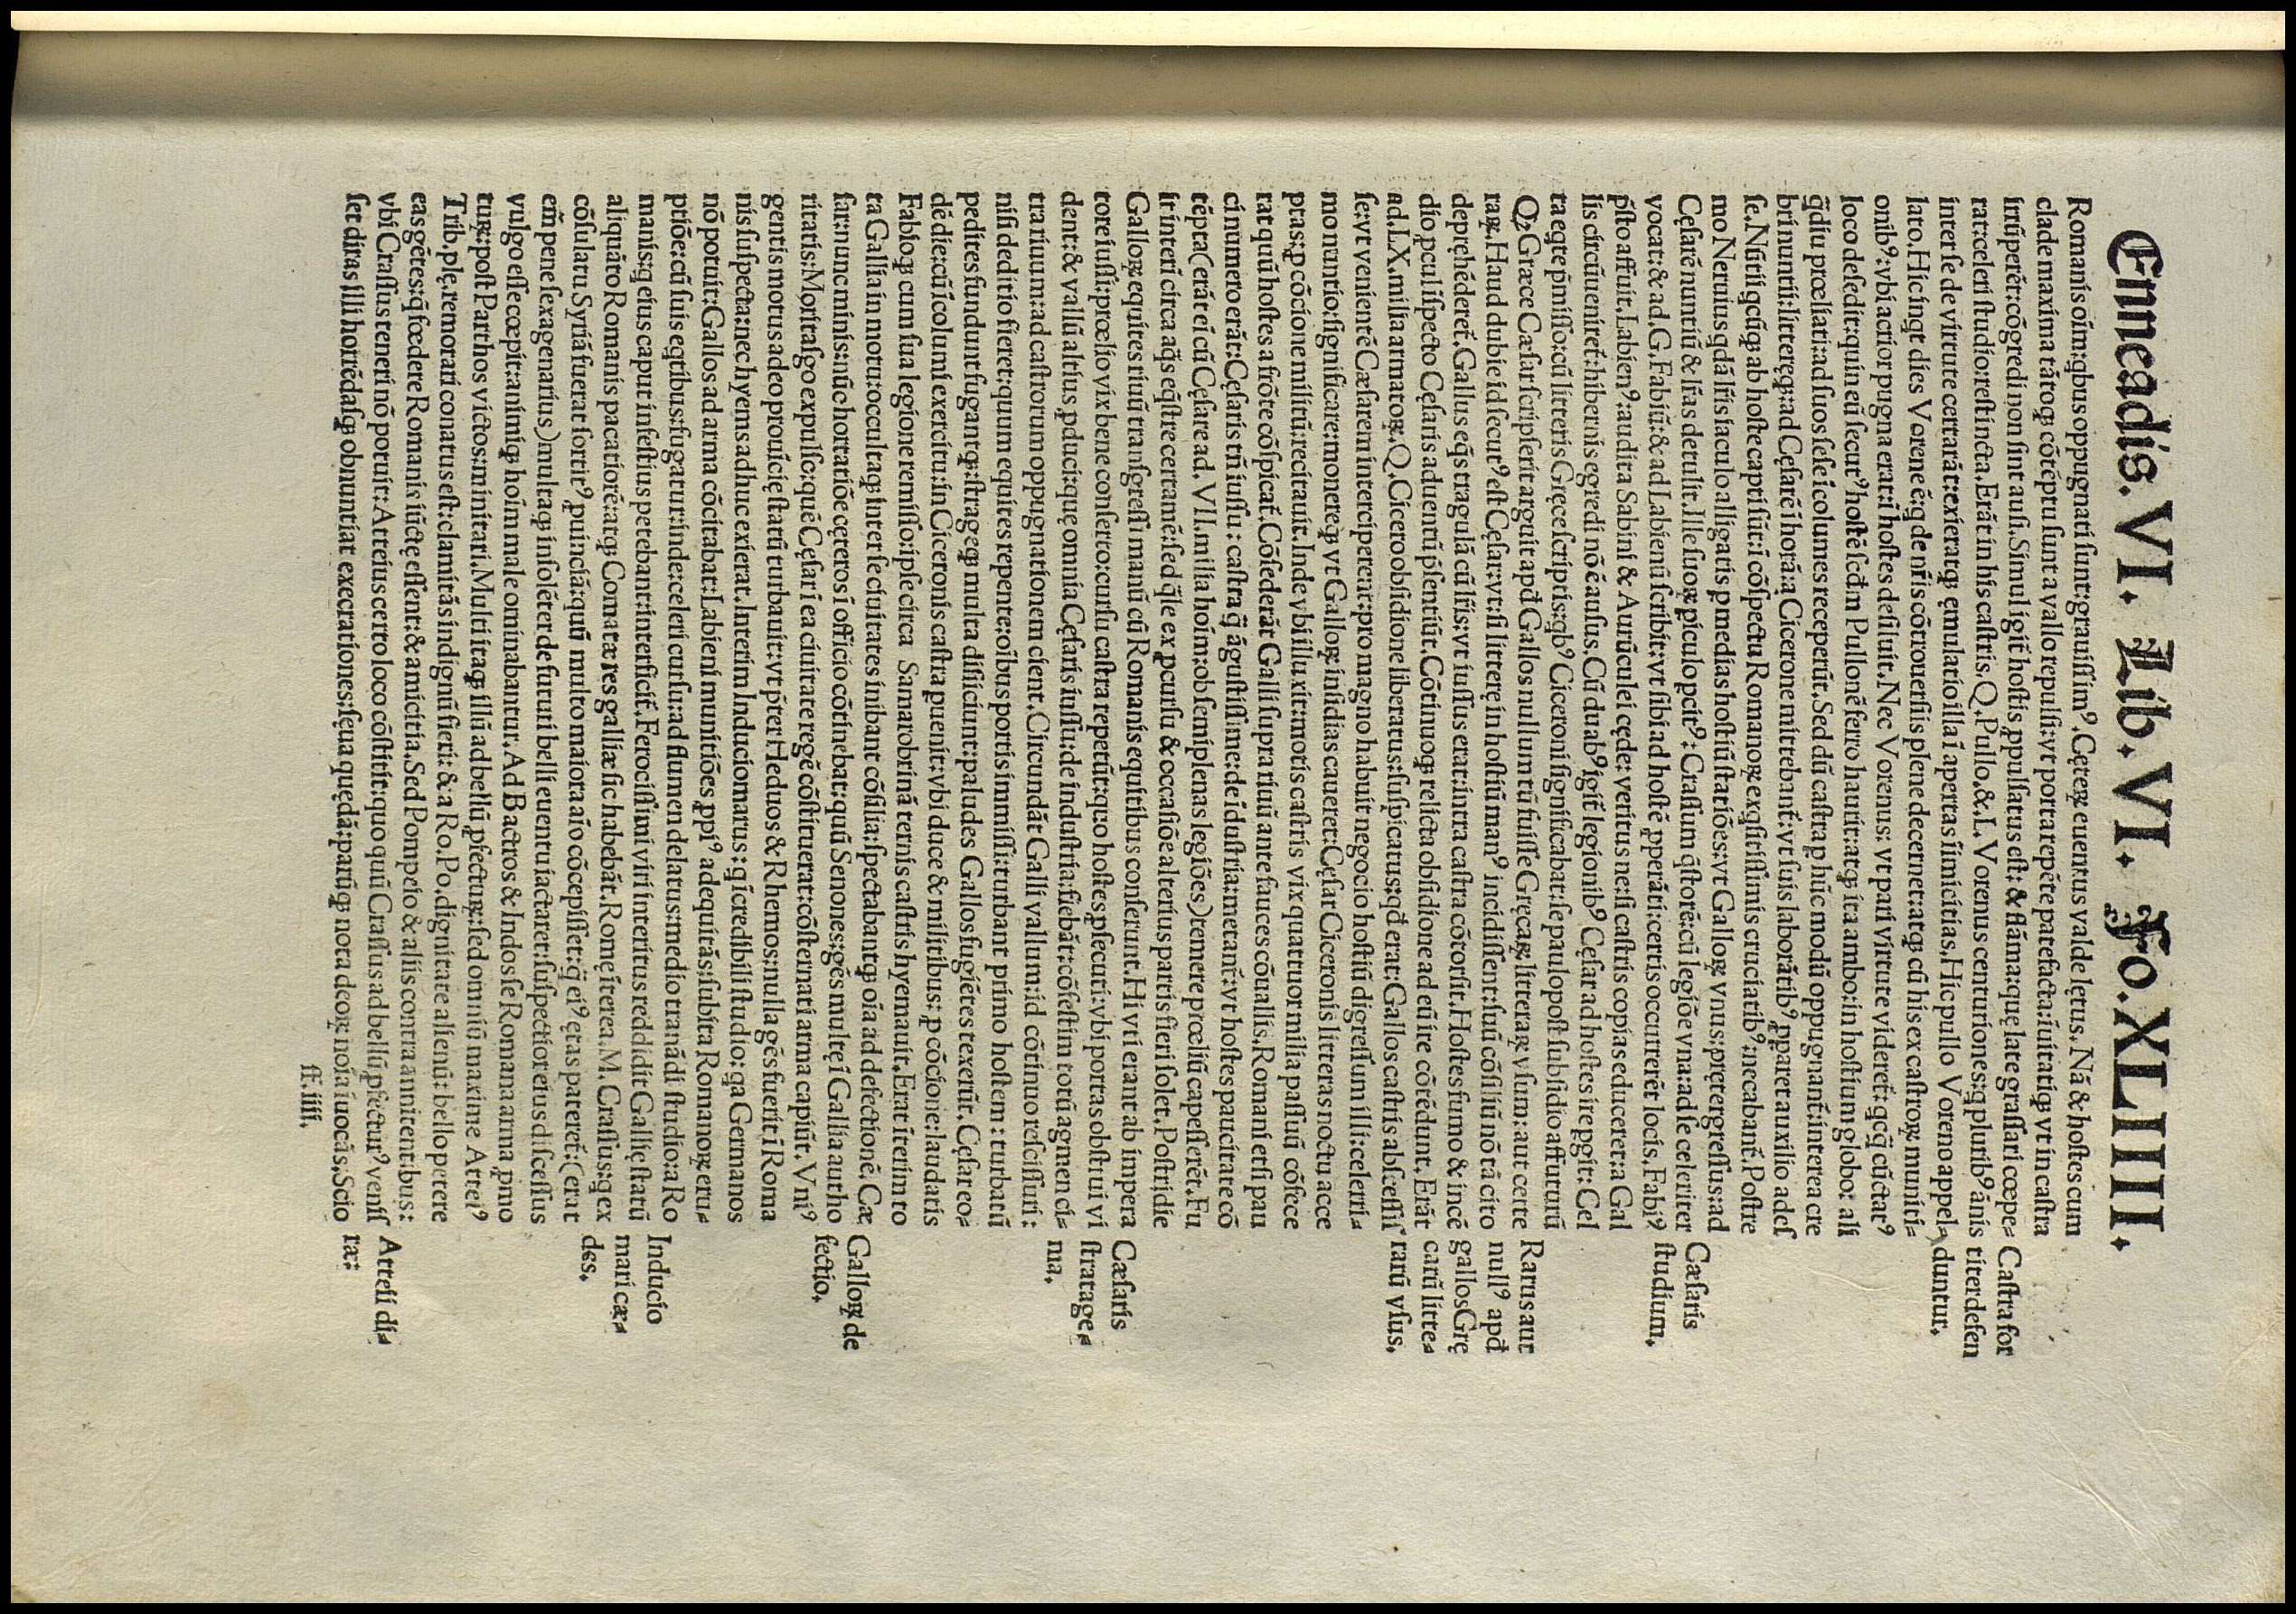 Enneadis. VI. Lib. VI. Fo. XLIII.
Romanis oīm: qbus oppugnati sunt: grauissim⁹. Cęteꝝ euentus valde lętus. Nā & hostes cum
clade maxima tātoqꝫ cōtēptu sunt a vallo repulsi: vt porta repēte patefacta: iuitatiqꝫ vt in castra
irrūperēt: cōgredi non sint ausi. Simul igiť hostis ꝓpulsatus est: & flāma: quę late grassari cœpe⸗
rat: celeri studio: restincta. Erāt in his castris. Q. Pullo. &. L. Vorenus centuriones: q plurib⁹ ānis
inter se de virtute certarāt: exieratqꝫ ęmulatio illa ī apertas iīmicitias. Hic pullo Voreno appel⸗
lato. Hic inqt dies Vorene ē: q de nr̄is cōtrouersiis plene decernet: atqꝫ cū his ex castroꝝ muniti⸗
onib⁹: vbi acrior pugna erat: ī hostes desiluit. Nec Vorenus: vt pari virtute videreť: qcq̄ cūctat⁹
loco desedit: quin eū secut⁹ hostē scd̄m Pullonē ferro haurit: atqꝫ ita ambo: in hostium globo: ali
q̄diu prœliati: ad suos sese īcolumes receperūt. Sed dū castra p hūc modū oppugnanť: interea cre
bri nuntii: litteręqꝫ: ad Cęsarē ī horā: a Cicerone mittebanť: vt suis laborātib⁹ ꝓparet auxilio adess
se. Nūtii qcūqꝫ ab hoste capti sūt: ī cōspectu Romanoꝝ exqsitissimis cruciatib⁹: necabanť. Postre
mo Neruius qdā lr̄is iaculo alligatis p medias hostiū statiōes: vt Galloꝝ vnus: prętergressus: ad
Cęsarē nuntiū & lr̄as detulit. Ille suoꝝ piculo pcit⁹: Crassum q̄storē: cū legiōe vna: ad se celeriter
vocat: & ad. G. Fabiū: & ad Labienū scribit: vt sibi ad hostē ꝓperāti: certis occurrerēt locis. Fabi⁹
p̄sto affuit. Labien⁹: audita Sabini & Aurūculei cęde: veritus ne: si castris copias educeret: a Gal
lis circūueniret: hibernis egredi nō ē ausus. Cū duab⁹ igiť legionib⁹ Cęsar ad hostes ire pgit: Cel
ta eqte p̄misso: cū litteris Gręce scriptis: qb⁹ Ciceroni significabat: se paulopost subsidio affuturū
Qꝫ Græce Cæsar scripserit arguit apd̄ Gallos nullum tū fuisse Gręcaꝝ litteraꝝ vsum: aut certe
raꝝ. Haud dubie id secut⁹ est Cęsar: vt: si litterę in hostiū man⁹ incidissent: suū cōsiliū nō tā cito
deprehēdereť. Gallus eq̄s tragulā cū lr̄is: vt iussus erat: intra castra cōtorsit. Hostes fumo & incē
dio pcul īspecto Cęsaris aduentū p̄sentiūt. Cōtinuoqꝫ relicta obsidione ad eū ire cōtēdunt. Erāt
ad. LX. milia armatoꝝ. Q. Cicero obsidione liberatus: suspicatus: qđ erat: Gallos castris abscessis
se: vt venientē Cæsarem interciperent: pro magno habuit negocio hostiū digressum illi: celerri⸗
mo nuntio: significare: monereqꝫ vt Galloꝝ insidias caueret: Cęsar Ciceronis litteras noctu acce
ptas: p cōcione militū: recitauit. Inde vbi illuxit: motis castris vix quattuor milia passuū cōfece
rat quū hostes a frōte cōspicať. Cōsederāt Galli supra riuū ante fauces cōuallis. Romani etsi pau
ci numero erāt: Cęsaris tn̄ iussu: castra q̄ āgustissime: de īdustria: metanť: vt hostes paucitate cō
tēpta (erāt ei cū Cęsare ad. VII. milia hoīm: ob semiplenas legiōes) temere prœliū capesserēt. Fu
it interī circa aq̄s eq̄stre certamē: sed q̄le ex pcursu & occasiōe alterius partis fieri solet. Postridie
Galloꝝ equites riuū transgressi manū cū Romanis equitibus conserunt. Hi vti erant ab impera
tore iussi: prœlio vix bene conserto: cursu castra repetūt: quo hostes psecuti: vbi portas obstrui vi
dent: & vallū altius pduci: quę omnia Cęsaris iussu: de industria: fiebāt: cōfestim totū agmen ci⸗
tra riuum: ad castrorum oppugnationem cient. Circundāt Galli vallum: id cōtinuo rescissuri:
nisi deditio fieret: quum equites repente: oībus portis immissi: turbant primo hostem: turbatū
pedites fundunt fugantqꝫ: stragēqꝫ multa disiiciunt: paludes Gallos fugiētes texerūt. Cęsar eo⸗
dē die: cū īcolumi exercitu: in Ciceronis castra puenit: vbi duce & militibus: p cōcione: laudatis
Fabioqꝫ cum sua legione remisso: ipse circa Samarobrinā ternis castris hyemauit. Erat īterim to
ta Gallia in motu: occultaqꝫ inter se ciuitates inibant cōsilia: spectabantqꝫ oīa ad defectionē. Cæ
sar: nunc minis: nūc hortatiōe cęteros ī officio cōtinebat: quū Senones: gēs multę ī Gallia autho
ritatis: Moritasgo expulso: quē Cęsar ī ea ciuitate regē cōstituerat: cōsternati arma capiūt. Vni⁹
gentis motus adeo prouicię statū turbauit: vt p̄ter Heduos & Rhemos: nulla gēs fuerit ī Roma
nis suspecta: nec hyems adhuc exierat. Interim Inducionarus: q īcredibili studio: qa Germanos
nō potuit: Gallos ad arma cōcitabat: Labieni munitiōes ppi⁹ adequitās: subita Romanoꝝ eru⸗
ptiōe: cū suis eqtibus: fugatur: inde: celeri cursu: ad flumen delatus: medio tranādi studio: a Ro
manis: q eius caput infestius petebant: interficiť. Ferocissimi viri interitus reddidit Gallię statū
aliquāto Romanis pacatiorē: atqꝫ Comatæ res galliæ sic habebāt. Romę īterea. M. Crassus: q ex
cōsulatu Syriā fuerat sortit⁹ puinciā: quū multo maiora aīo cōcepisset: q̄ ei⁹ ętas patereť: (erat
em̄ pene sexagenarius) multaqꝫ insolēter de futuri belli euentu iactaret: suspectior eius discessus
vulgo esse cœpit: animiqꝫ hoīm male ominabantur. Ad Bactros & Indos se Romana arma pmo
tuꝝ: post Parthos victos: minitari. Multi itaqꝫ illū ad bellū pfectuꝝ: sed omniū maxime Attei⁹
Trib. plę. remorari conatus est: clamitās indignū fieri: & a Ro. Po. dignitate alienū: bello petere
eas gētes: q̄ fœdere Romanis iūctę essent: & amicitia. Sed Pompeio & aliis contra annitentibus:
vbi Crassus teneri nō potuit: Atteius certo loco cōstitit: quo quū Crassus ad bellū pfectur⁹ venis
set diras illi horrēdasqꝫ obnuntiat execrationes: sęua quędā: parūqꝫ nota deoꝝ noīa iuocās. Scio
ff. iiii.
Castra for
titer defen
duntur.
Cæsaris
studium.
Rarus aut
null⁹ apđ
gallos Grę
carū litte⸗
rarū vsus.
Cæsaris
stratage⸗
ma.
Galloꝝ de
fectio.
Inducio
mari cæ⸗
des.
Atteii di⸗
ræ: